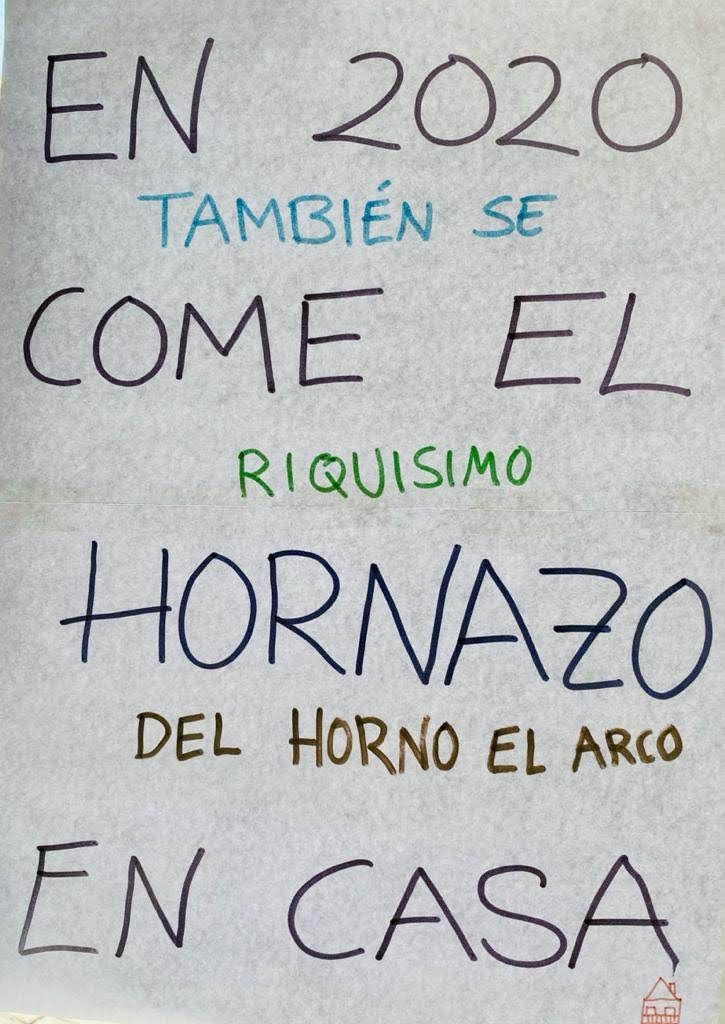 EN 2020
TAMBIÉN SE
COME EL
RIQUISIMO
HORNAZO
DEL HORNO EL ARCO
EN CASA